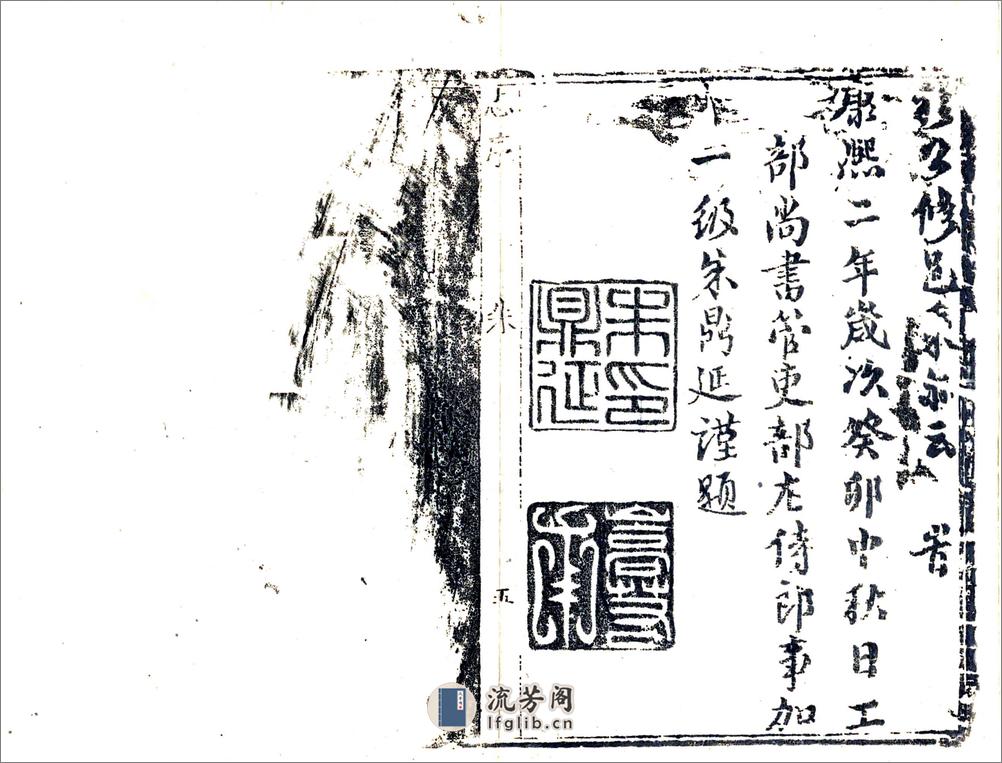 公修邑 云 旹
康熙二年歲次癸卯中秋日工
部尚書管吏部左侍郎事加
一級朱鼎延謹題
朱印
鼎延
志序 朱 五
流芳阁
lfglib.cn